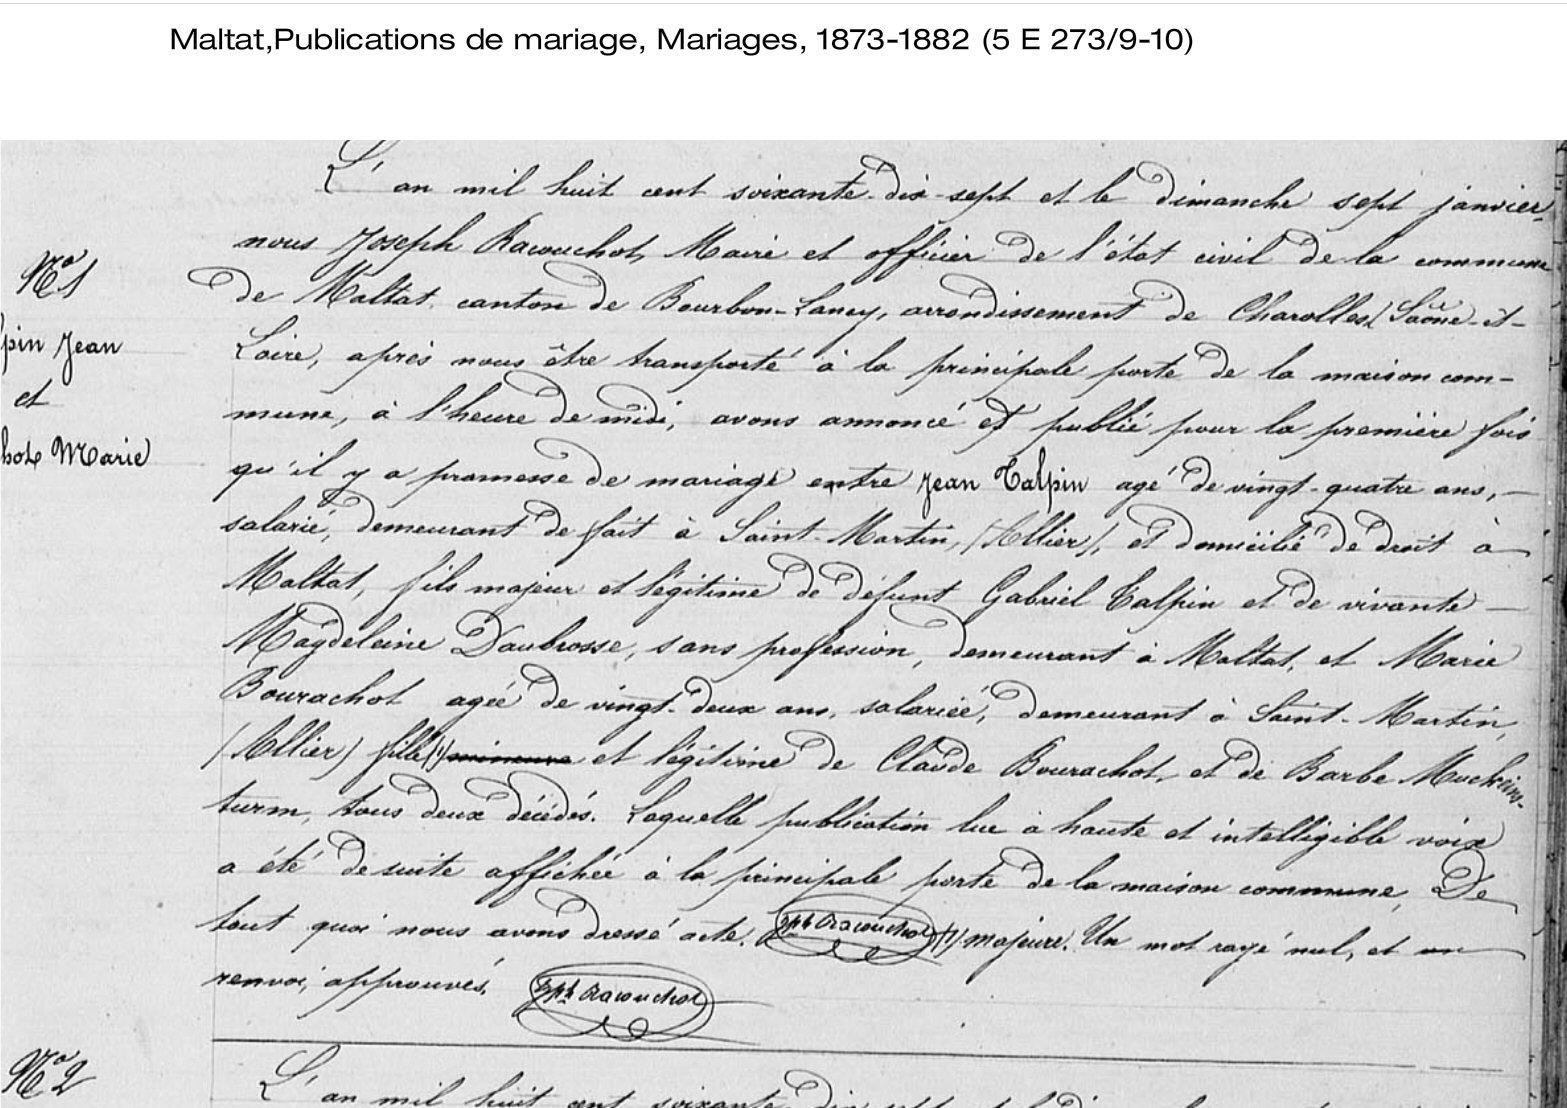 Maltat,Publications de mariage, Mariages, 1873-1882 (5 E 273/9-10)
L'an mil huit cent soixante-dix-sept et le dimanche sept janvier,
nous Joseph Racouchot, Maire et officier de l'état civil de la commune
de Maltat, canton de Bourbon-Lancy, arrondissement de Charolles (Saône-et-
Loire, après nous être transporté à la principale porte de la maison com-
mune, à l'heure de midi, avons annoncé et publié pour la première fois
qu'il y a promesse de mariage entre Jean Talpin agé de vingt-quatre ans,
salarié, demeurant de fait à Saint-Martin, (Allier), et domicilié de droit à
Maltat, fils majeur et légitime de défunt Gabriel Talpin et de vivante
Magdeleine Daubrosse, sans profession, demeurant à Maltat, et Marie
Bourachot agée de vingt-deux ans, salariée, demeurant à Saint-Martin,
(Allier) fille (1) mineure et légitime de Claude Bourachot, et de Barbe Muckens-
turm, tous deux décédés. Laquelle publication lue à haute et intelligible voix
a été de suite affichée à la principale porte de la maison commune, De
tout quoi nous avons dressé acte. Jph Racouchot (1) majeure. Un mot rayé nul, et un
renvoi, approuvés. Jph Racouchot
No 1
pin Jean
et
hot Marie
No 2
L'an mil huit cent soixante dix sept